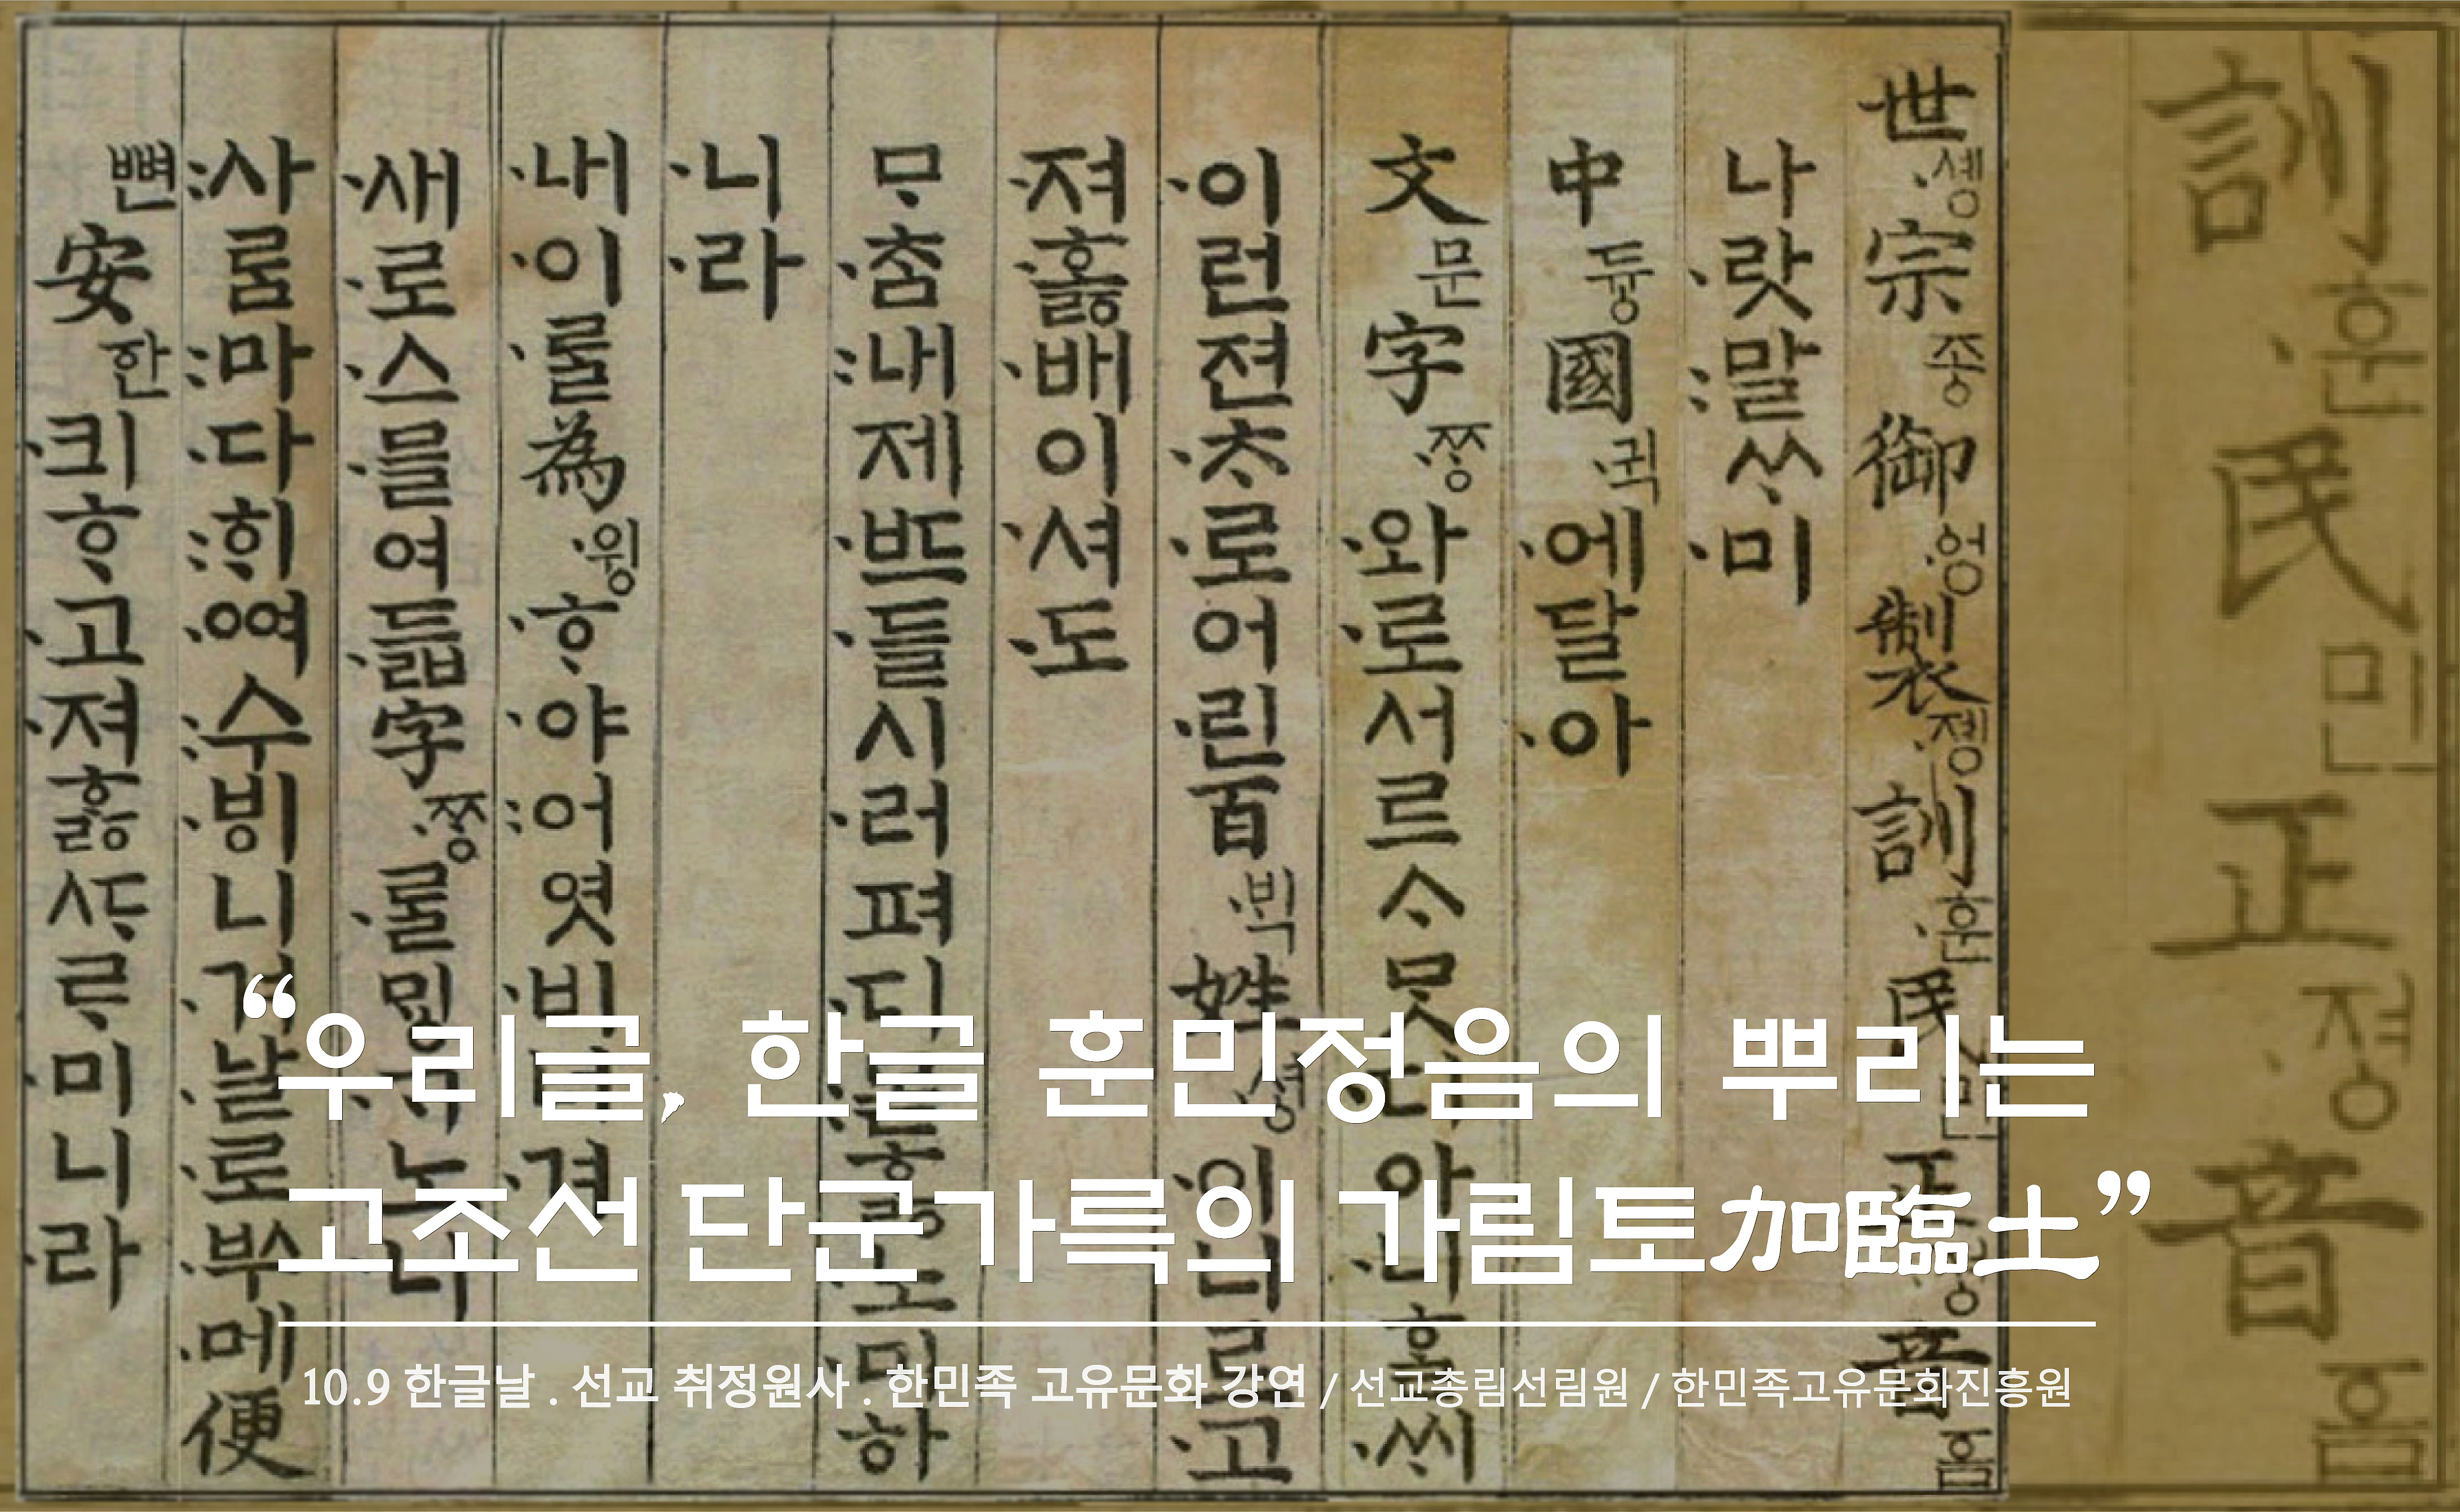 訓·훈民민正·졍音ᅙᅳᆷ
世·솅宗종御·엉製·졩訓·훈民민正·졍音ᅙᅳᆷ
나·랏:말ᄊᆞ·미
中듕國·귁·에달·아
文문字·ᄍᆞᆼ·와·로서르ᄉᆞᄆᆞᆺ디아·니ᄒᆞᆯ·ᄊᆡ
·이런젼·ᄎᆞ·로어·린百·ᄇᆡᆨ姓·셩·이니르·고
·져·호ᇙ·배이·셔·도
ᄆᆞ·ᄎᆞᆷ:내제·ᄠᅳ·들시·러펴·디:몯ᄒᆞᇙ·노·미하
·니·라
·내·이·ᄅᆞᆯ為·윙·ᄒᆞ·야:어엿·비너·겨
·새·로·스·믈여·듧字·ᄍᆞᆼ·ᄅᆞᆯᄆᆡᇰ·ᄀᆞ노·니
:사ᄅᆞᆷ:마·다:ᄒᆡ·ᅇᅧ:수·ᄫᅵ니·겨·날·로·ᄡᅮ·메便
뼌安한·킈·ᄒᆞ·고·져ᄒᆞᇙᄯᆞᄅᆞ·미니·라
“우리글, 한글 훈민정음의 뿌리는
고조선 단군가륵의 가림토加臨土”
10.9 한글날 . 선교 취정원사 . 한민족 고유문화 강연 / 선교총림선림원 / 한민족고유문화진흥원